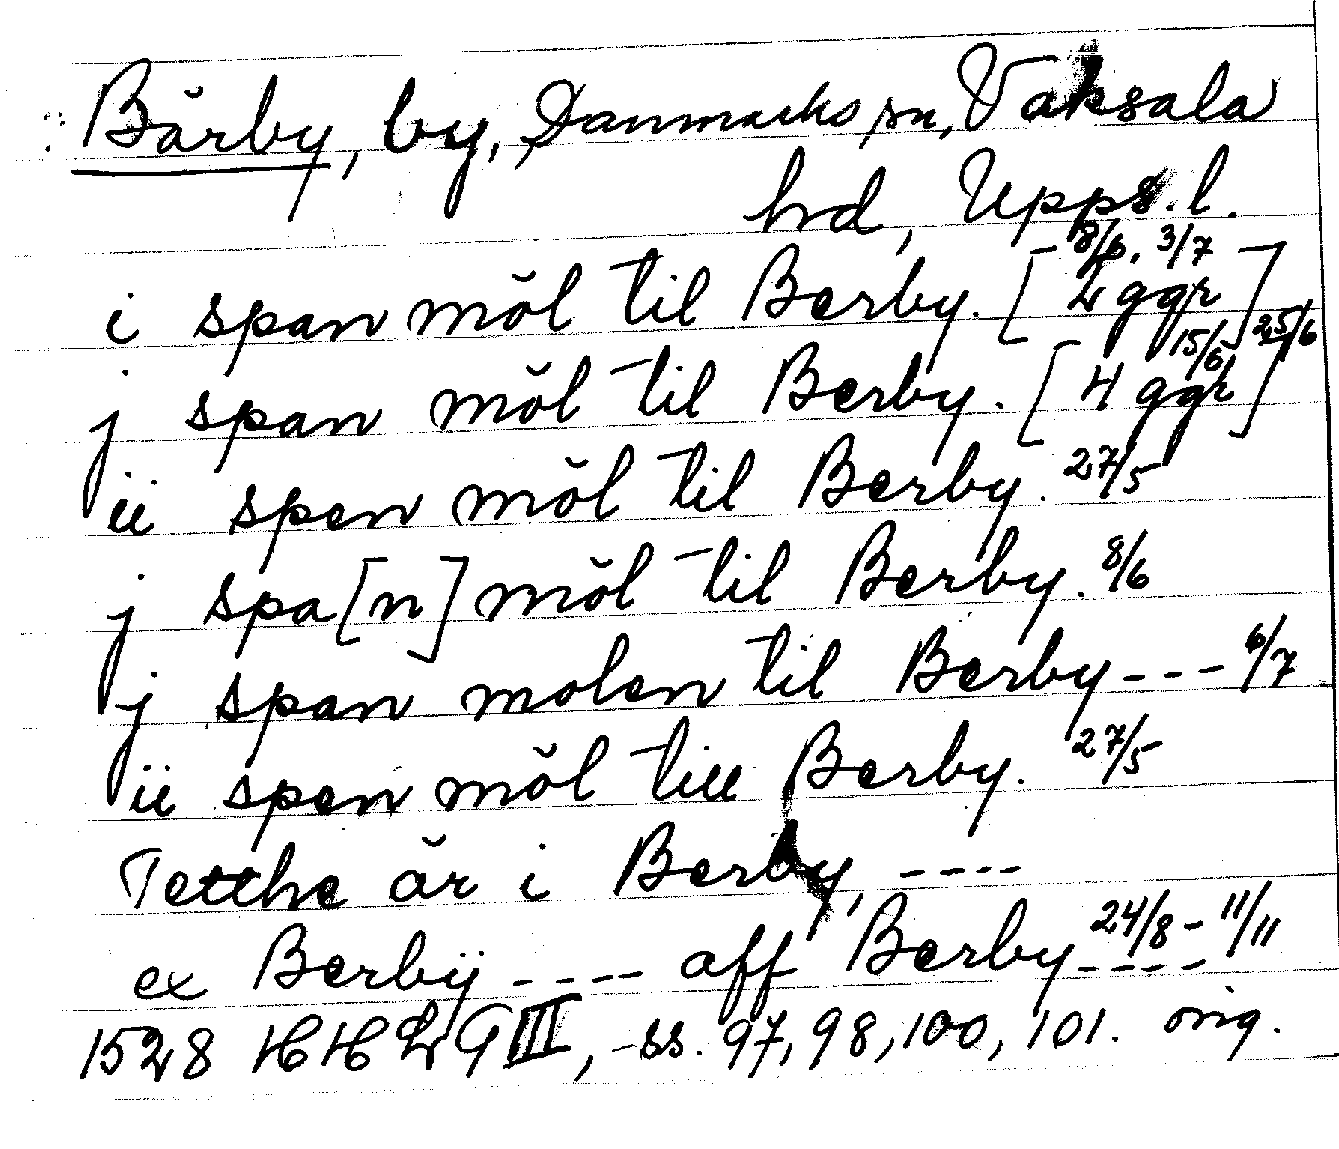 Bärby, by, Danmarks sn, Vaksala
hd, Upps. l.
i span mŏl til Berby. [2 ggr] 8/6. 3/7
j span mŏl til Berby. [4 ggr] 15/6 25/6
ii spen mŏl til Berby. 27/5
j spa[n] mŏl til Berby. 8/6
j span molen til Berby --- 6/7
ii spen mŏl till Berby. 27/5
Tetthe ăr i Berby, ----
ex Berbÿ ---- aff Berby ---- 24/8 - 11/11
1528 HH 2 G III, ss. 97, 98, 100, 101. orig.